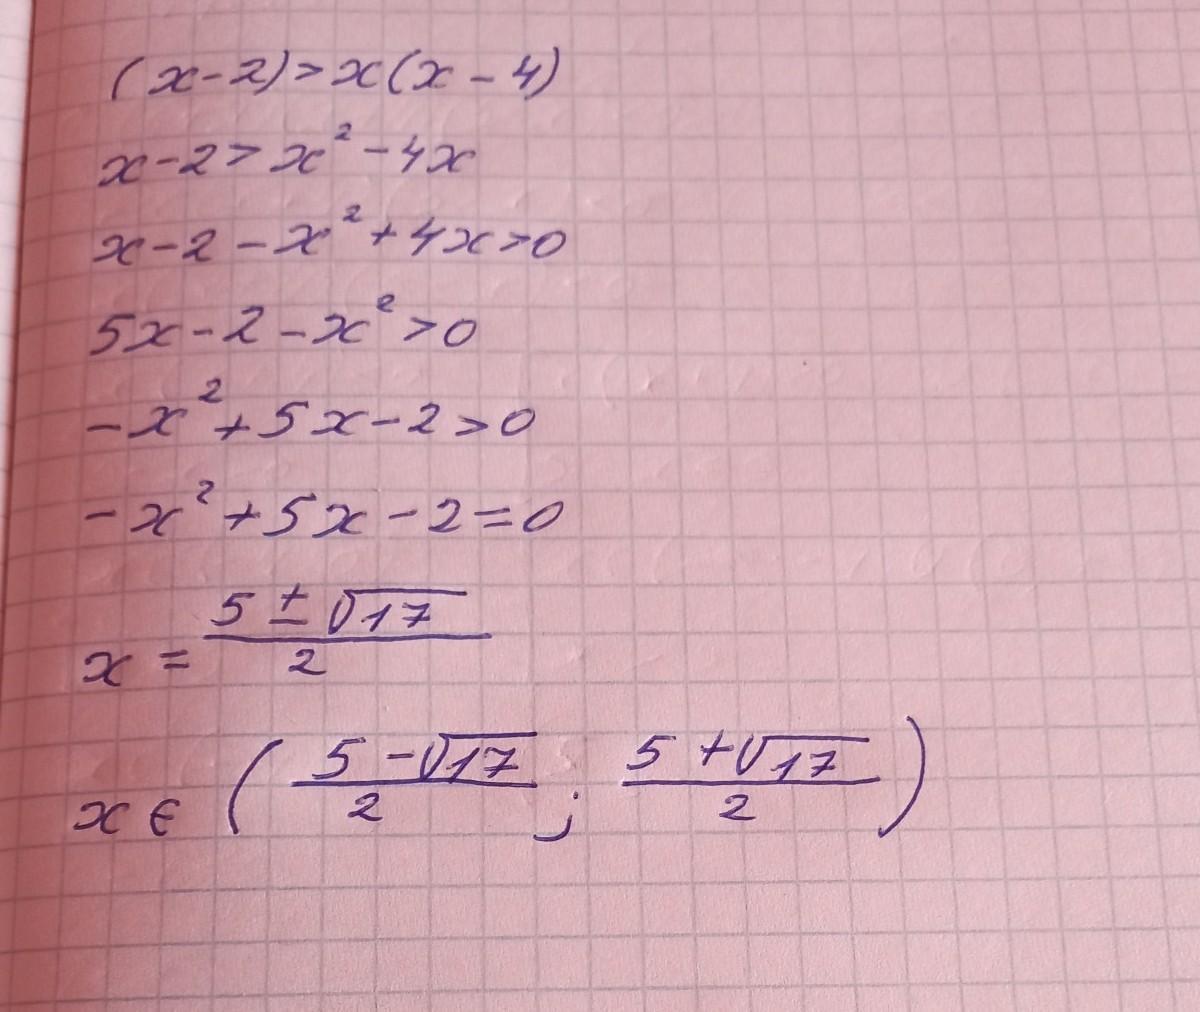 (x-2)>x(x-4)
x-2>x²-4x
x-2-x²+4x>0
5x-2-x²>0
-x²+5x-2>0
-x²+5x-2=0
x = (5±√17)/2
x ∈ ((5-√17)/2 ; (5+√17)/2)